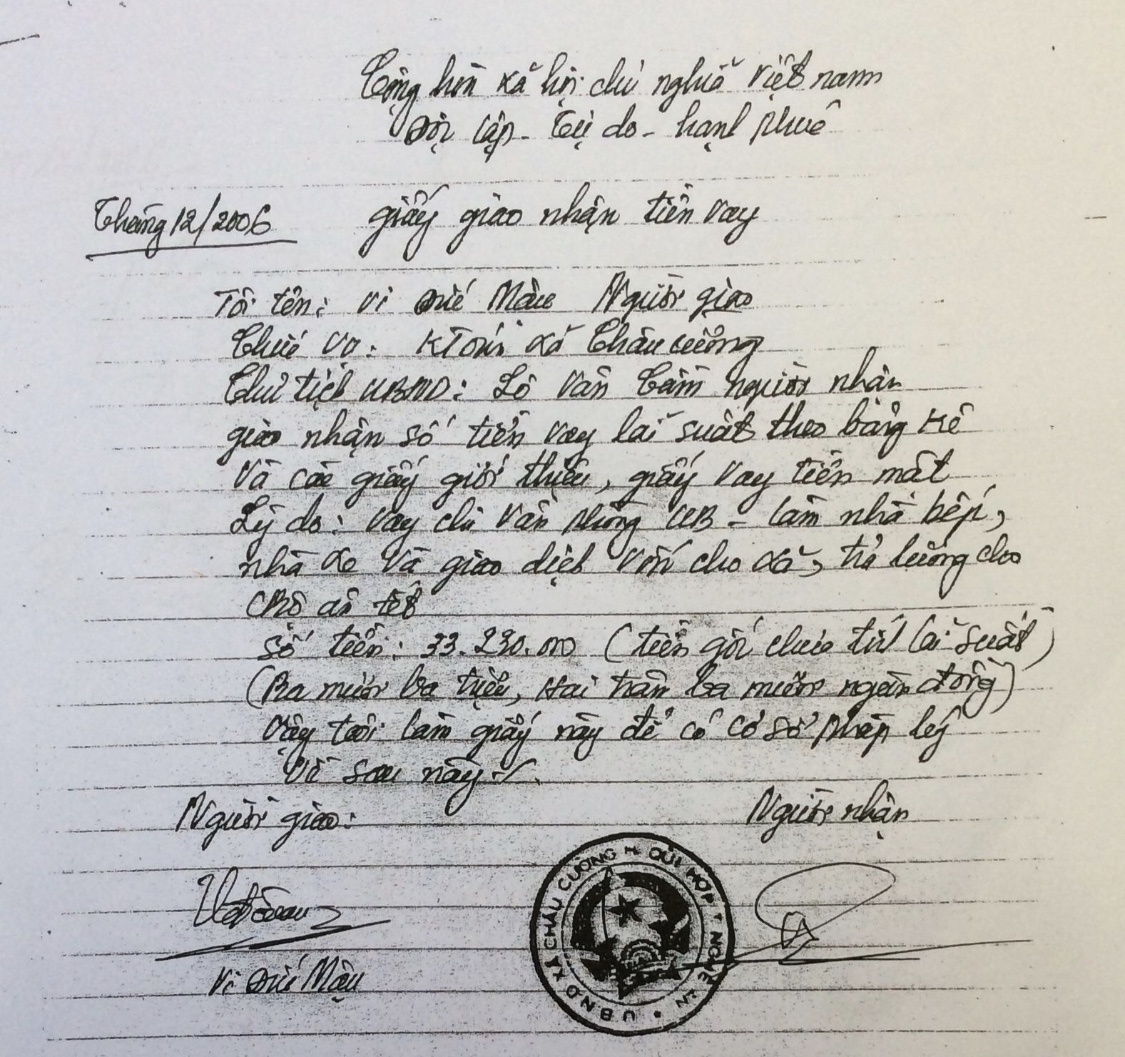 Cộng hòa xã hội chủ nghĩa Việt nam
Độc lập - Tự do - hạnh phúc
Tháng 12/2006 giấy giao nhận tiền vay
Tôi tên: Vi Đức Mậu Người giao
Chức vụ: KToán xã Châu cường
Chủ tịch UBND: Lô Văn Cầm người nhận
giao nhận số tiền vay lãi suất theo bảng kê
Và các giấy giới thiệu, giấy vay tiền mặt
Lý do: Vay chi Văn phòng UB - làm nhà bếp,
nhà xe Và giao dịch Vốn cho xã, trả lương cho
CBộ ăn tết
Số tiền: 33.230.000 (tiền gốc chưa tính lãi suất)
(Ba mươi ba triệu, Hai trăm ba mươi ngàn đồng)
Vậy tôi làm giấy này để có cơ sở pháp lý
Về sau này./.
Người giao: Người nhận
U.B.N.D XÃ CHÂU CƯỜNG H. QUỲ HỢP T. NGHỆ AN
Vi Đức Mậu